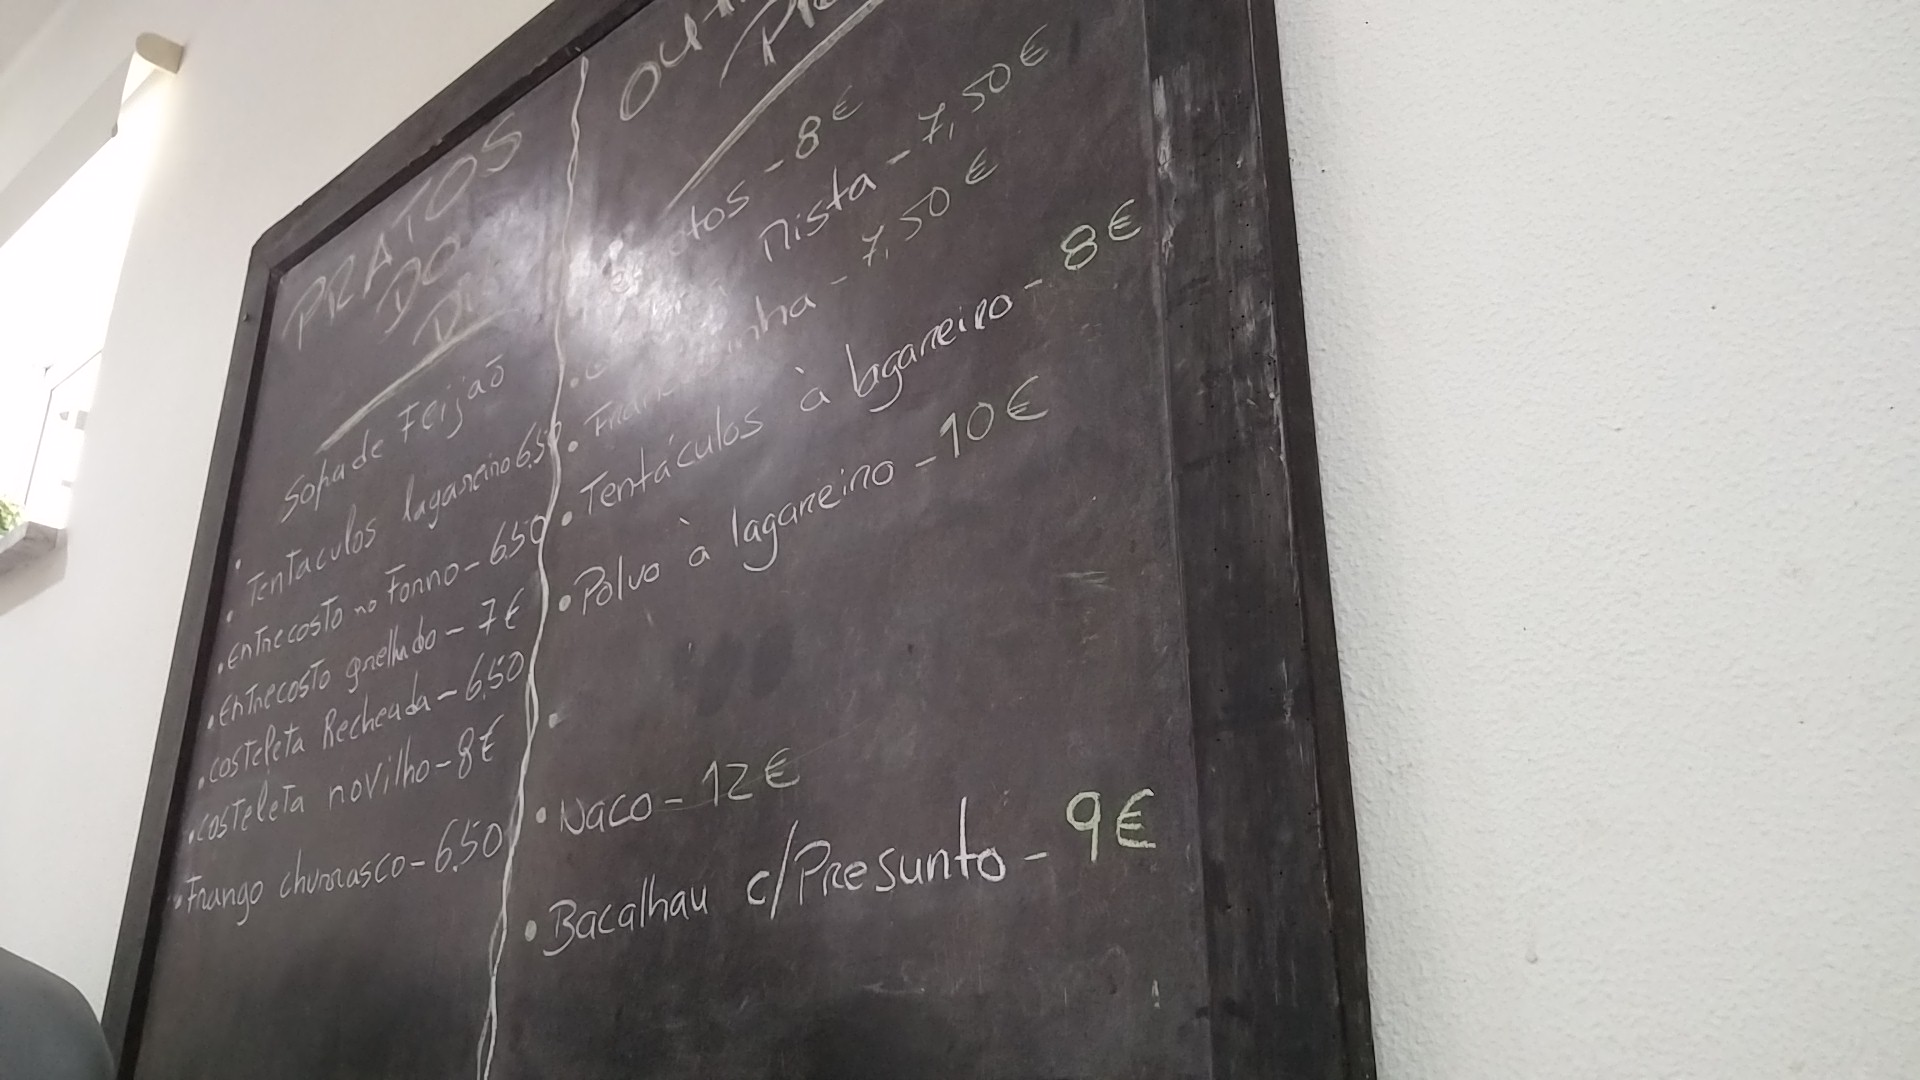 PRATOS
DO
DIA
Sopa de Feijão
• Tentaculos lagareiro 6.50
• Entrecosto no Forno - 6.50
• Entrecosto grelhado - 7€
• costeleta Recheada - 6.50
• costeleta novilho - 8€
• Frango churrasco - 6.50
- 8€
Mista - 7,50€
• Francesinha - 7,50€
• Tentáculos à lagareiro - 8€
• Polvo à lagareiro - 10€
•
• Naco - 12€
• Bacalhau c/Presunto - 9€